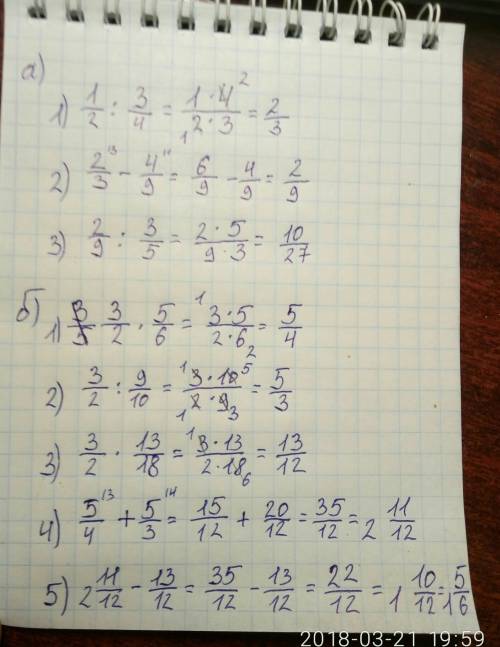 а)
1) 1/2 : 3/4 = 1·4 2/1 2·3 = 2/3
2) 2/3 ¹³ - 4/9 ¹¹ = 6/9 - 4/9 = 2/9
3) 2/9 : 3/5 = 2·5/9·3 = 10/27
б)
1) 3/2 · 5/6 = 1 3·5/2·6 2 = 5/4
2) 3/2 : 9/10 = 1 3·10 5/1 2·9 3 = 5/3
3) 3/2 · 13/18 = 1 3·13/2·18 6 = 13/12
4) 5/4 ¹³ + 5/3 ¹⁴ = 15/12 + 20/12 = 35/12 = 2 11/12
5) 2 11/12 - 13/12 = 35/12 - 13/12 = 22/12 = 1 10/12 = 1 5/6
2018-03-21 19:59